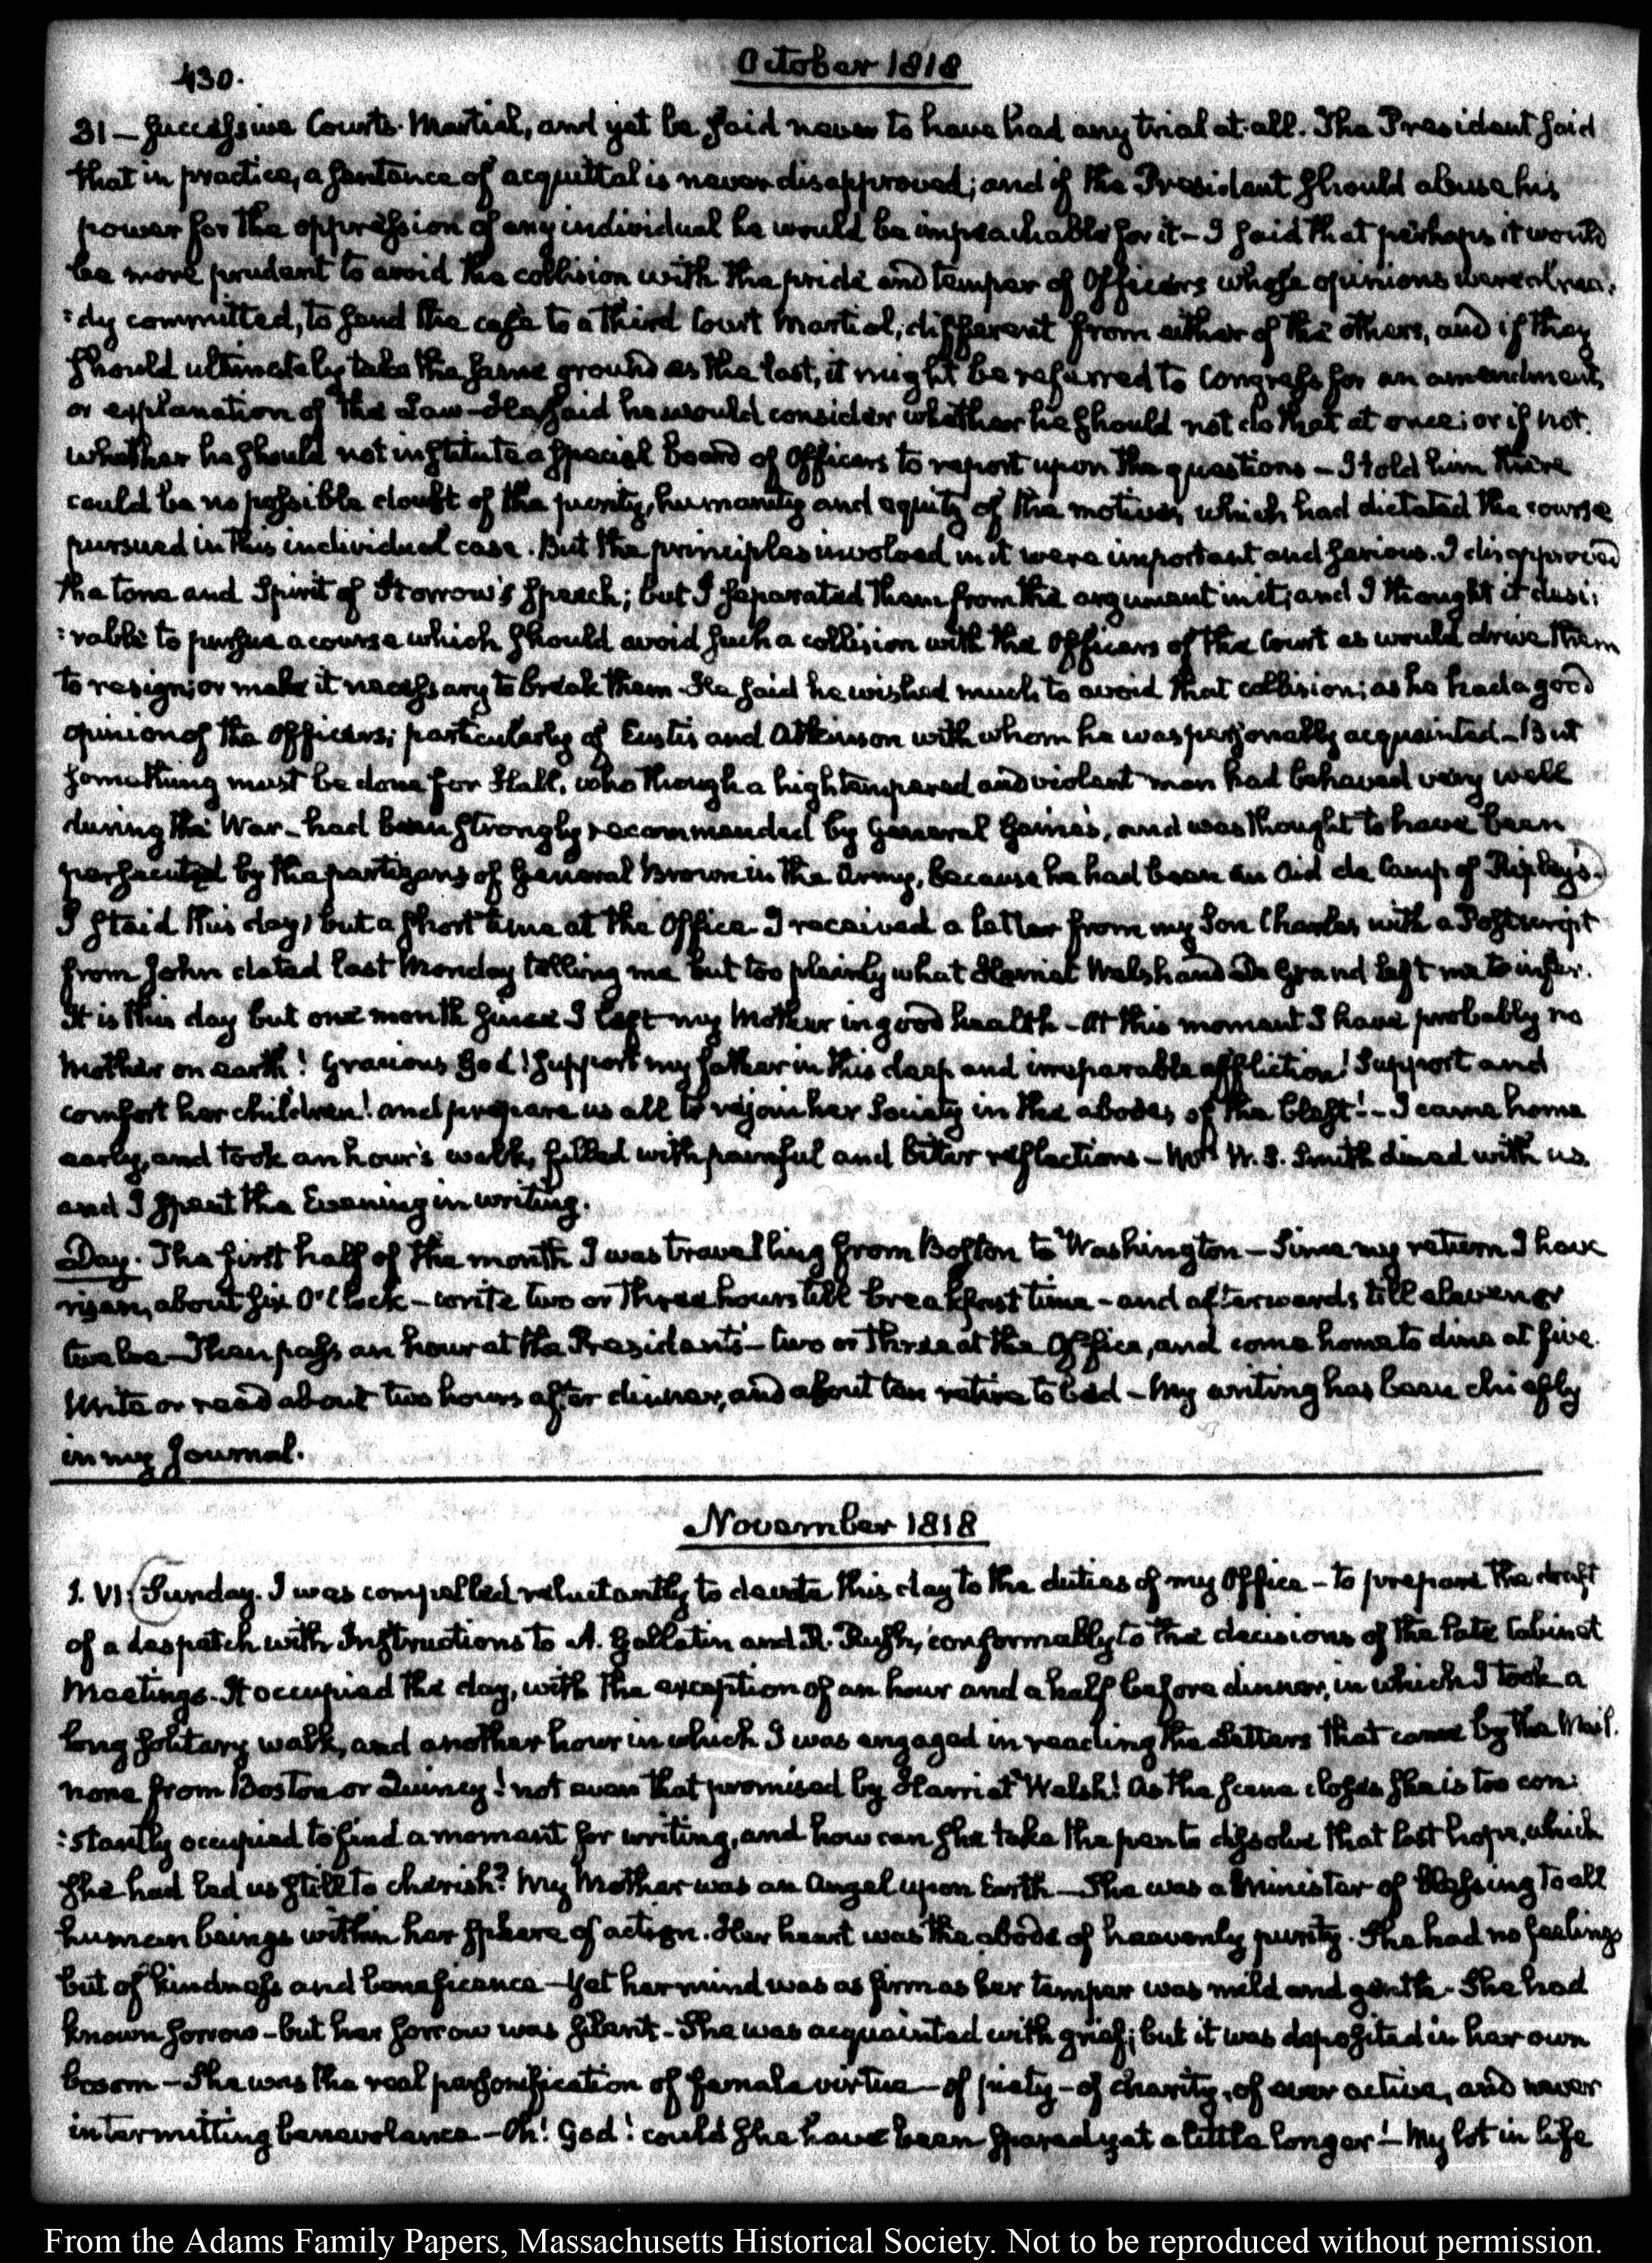 430.
October 1818
31 — Successive Courts-Martial, and yet be said never to have had any trial at all. The President said
that in practice, a sentence of acquittal is never disapproved; and if the President should abuse his
power for the oppression of any individual he would be impeachable for it — I said that perhaps it would
be more prudent to avoid the collision with the pride and temper of Officers whose opinions were alrea:
:dy committed, to send the case to a third Court Martial, different from either of the others, and if they
should ultimately take the same ground as the last, it might be referred to Congress for an amendment,
or explanation of the Law — He said he would consider whether he should not do that at once; or if not.
whether he should not institute a special board of Officers to report upon the questions — I told him there
could be no possible doubt of the purity, humanity and equity of the motives which had dictated the course
pursued in this individual case. But the principles involved in it were important and serious. I disapproved
the tone and Spirit of Storrow's speech; but I separated them from the argument in it; and I thought it desi:
:rable to pursue a course which should avoid such a collision with the Officers of the Court as would drive them
to resign; or make it necessary to break them — He said he wished much to avoid that collision; as he had a good
opinion of the Officers; particularly of Eustis and Atkinson with whom he was personally acquainted — But
something must be done for Hall, who though a high tempered and violent man had behaved very well
during the War — had been strongly recommended by General Gaines, and was thought to have been
persecuted by the partizans of General Brown in the Army, because he had been an Aid de Camp of Ripley's.
I staid this day, but a short time at the Office. I received a letter from my Son Charles with a Postscript
from John dated last Monday telling me but too plainly what Harriet Welsh and De Grand left me to infer.
It is this day but one month since I left my Mother in good health — At this moment I have probably no
Mother on earth! Gracious God! support my father in this deep and irreparable affliction! Support and
comfort her children! and prepare us all to rejoin her Society in the abodes of the blest! — I came home
early, and took an hour's walk, filled with painful and bitter reflections — W. S. Smith dined with us.
and I spent the Evening in writing.
Day. The first half of the month I was travelling from Boston to Washington — Since my return I have
risen, about six O'Clock — write two or three hours till breakfast time — and afterwards till eleven or
twelve — Then pass an hour at the President's — two or three at the Office, and come home to dine at five.
Write or read about two hours after dinner, and about ten retire to bed — My writing has been chiefly
in my Journal.
November 1818
1. VI: Sunday. I was compelled reluctantly to devote this day to the duties of my Office — to prepare the draft
of a despatch with Instructions to A. Gallatin and R. Rush, conformably to the decisions of the late Cabinet
Meetings. It occupied the day, with the exception of an hour and a half before dinner, in which I took a
long solitary walk, and another hour in which I was engaged in reading the Letters that came by the Mail.
none from Boston or Quincy! not even that promised by Harriet Welsh! As the scene closes she is too con:
:stantly occupied to find a moment for writing, and how can she take the pen to dissolve that last hope, which
she had led us still to cherish? My Mother was an Angel upon Earth — She was a Minister of blessing to all
human beings within her sphere of action. Her heart was the abode of heavenly purity. She had no feelings
but of kindness and beneficence — Yet her mind was as firm as her temper was mild and gentle. She had
known sorrow — but her sorrow was silent — She was acquainted with grief; but it was deposited in her own
bosom — She was the real personification of female virtue — of piety — of charity, of ever active, and never
intermitting benevolence — Oh! God! could she have been spared yet a little longer! — My lot in life
From the Adams Family Papers, Massachusetts Historical Society. Not to be reproduced without permission.